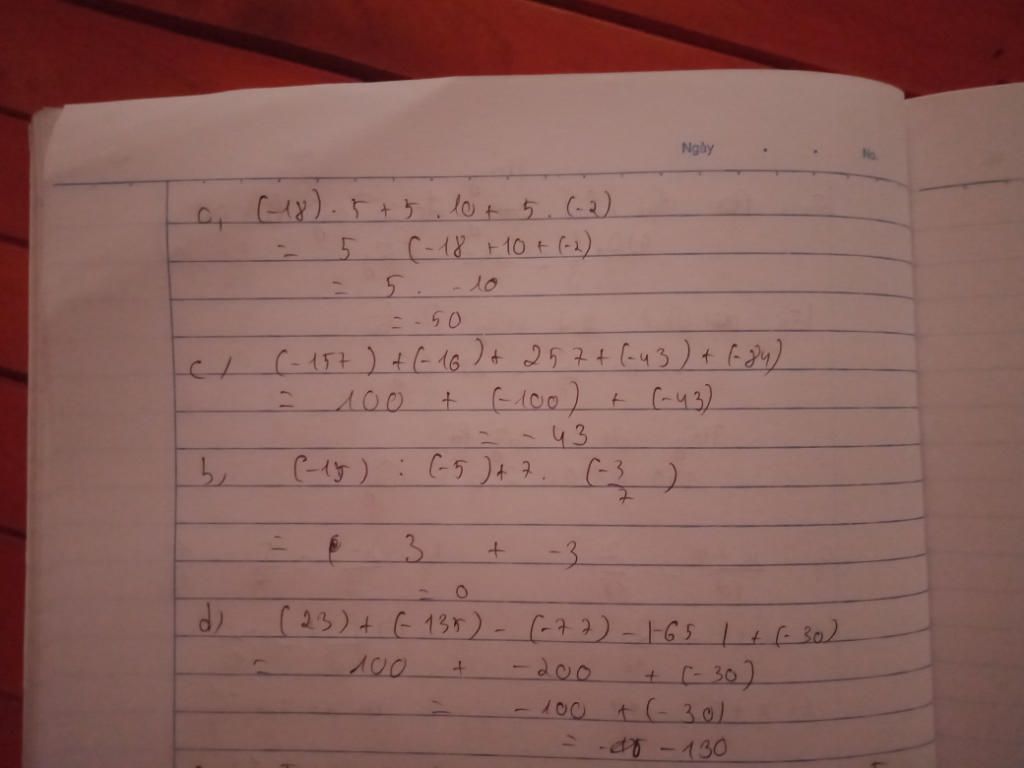 Ngày . . No.
a, (-18) . 5 + 5 . 10 + 5 . (-2)
= 5 (-18 + 10 + (-2)
= 5 . -10
= -50
c, (-157) + (-16) + 257 + (-43) + (-84)
= 100 + (-100) + (-43)
= - 43
b, (-15) : (-5) + 7 . (-3/7)
= 3 + -3
= 0
d) (23) + (-135) - (-77) - |-65| + (-30)
= 100 + -200 + (-30)
= -100 + (-30)
= -130